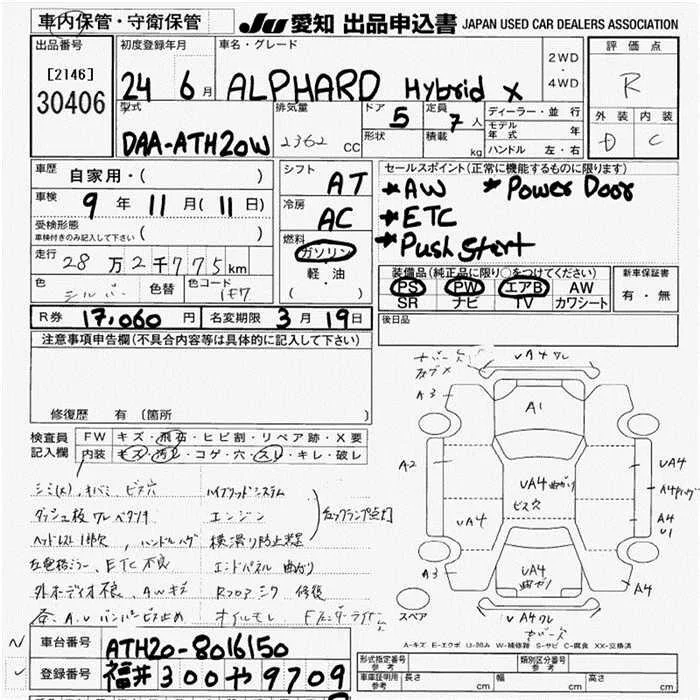 車内保管・守衛保管
JU 愛知 出品申込書 JAPAN USED CAR DEALERS ASSOCIATION
出品番号
[2146]
30406
初度登録年月
24 6月
車名・グレード
ALPHARD Hybrid X
2WD
・
4WD
評価点
R
外装 内装
D C
型式
DAA-ATH20W
排気量
2362 CC
ドア 5
形状
定員 7人
積載 kg
ディーラー・並行
モデル年式 年
ハンドル 左・右
車歴
自家用・( )
車検 9年11月(11日)
受検形態
車検付きのみ記入して下さい ( )
走行 28万2千775km
色 シルバー 色替 色コード 1F7
シフト
AT
冷房
AC
燃料
ガソリン
軽・油
( ・ )
セールスポイント(正常に機能するものに限ります)
*AW *Power Door
*ETC
*Push Start
装備品(純正品に限り○をつけてください)
PS PW エアB AW
SR ナビ TV カワシート
新車保証書
有・無
R券 17,060円 名変期限 3月19日
後日品
注意事項申告欄(不具合内容等は具体的に記入して下さい)
修復歴 有(箇所
検査員
記入欄
FW キズ・飛石・ヒビ割・リペア跡・X要
内装 キズ・汚レ・コゲ・穴・スレ・キレ・破レ
シミ(大)、キバミ、ビス穴
ハイブリッドシステム
ダッシュ板ワレベタツキ
エンジン
チェックランプ点灯
ヘッドレスト1ケ欠、ハンドルハゲ
横滑り防止装置
左電格ミラー、ETC不良
エンドパネル曲ガリ
外オーディオ不良、AWキズ
Rフロアミウ 修復
オイルモレ
A3
A1
A2
UA4
UA4
曲ガリ
ビス穴
UA4
A4
U1
UA4
曲ガリ
A3
A4
UA4ワレ
スペア
A-キズ E-エクボ U-凹み W-補修跡 S-サビ C-腐食 XX-交換済
車台番号 ATH20-8016150
登録番号 福井300や9709
形式指定番号
参考
類別区分番号
参考
車庫証明用
参考
長さ cm
幅 cm
高さ cm